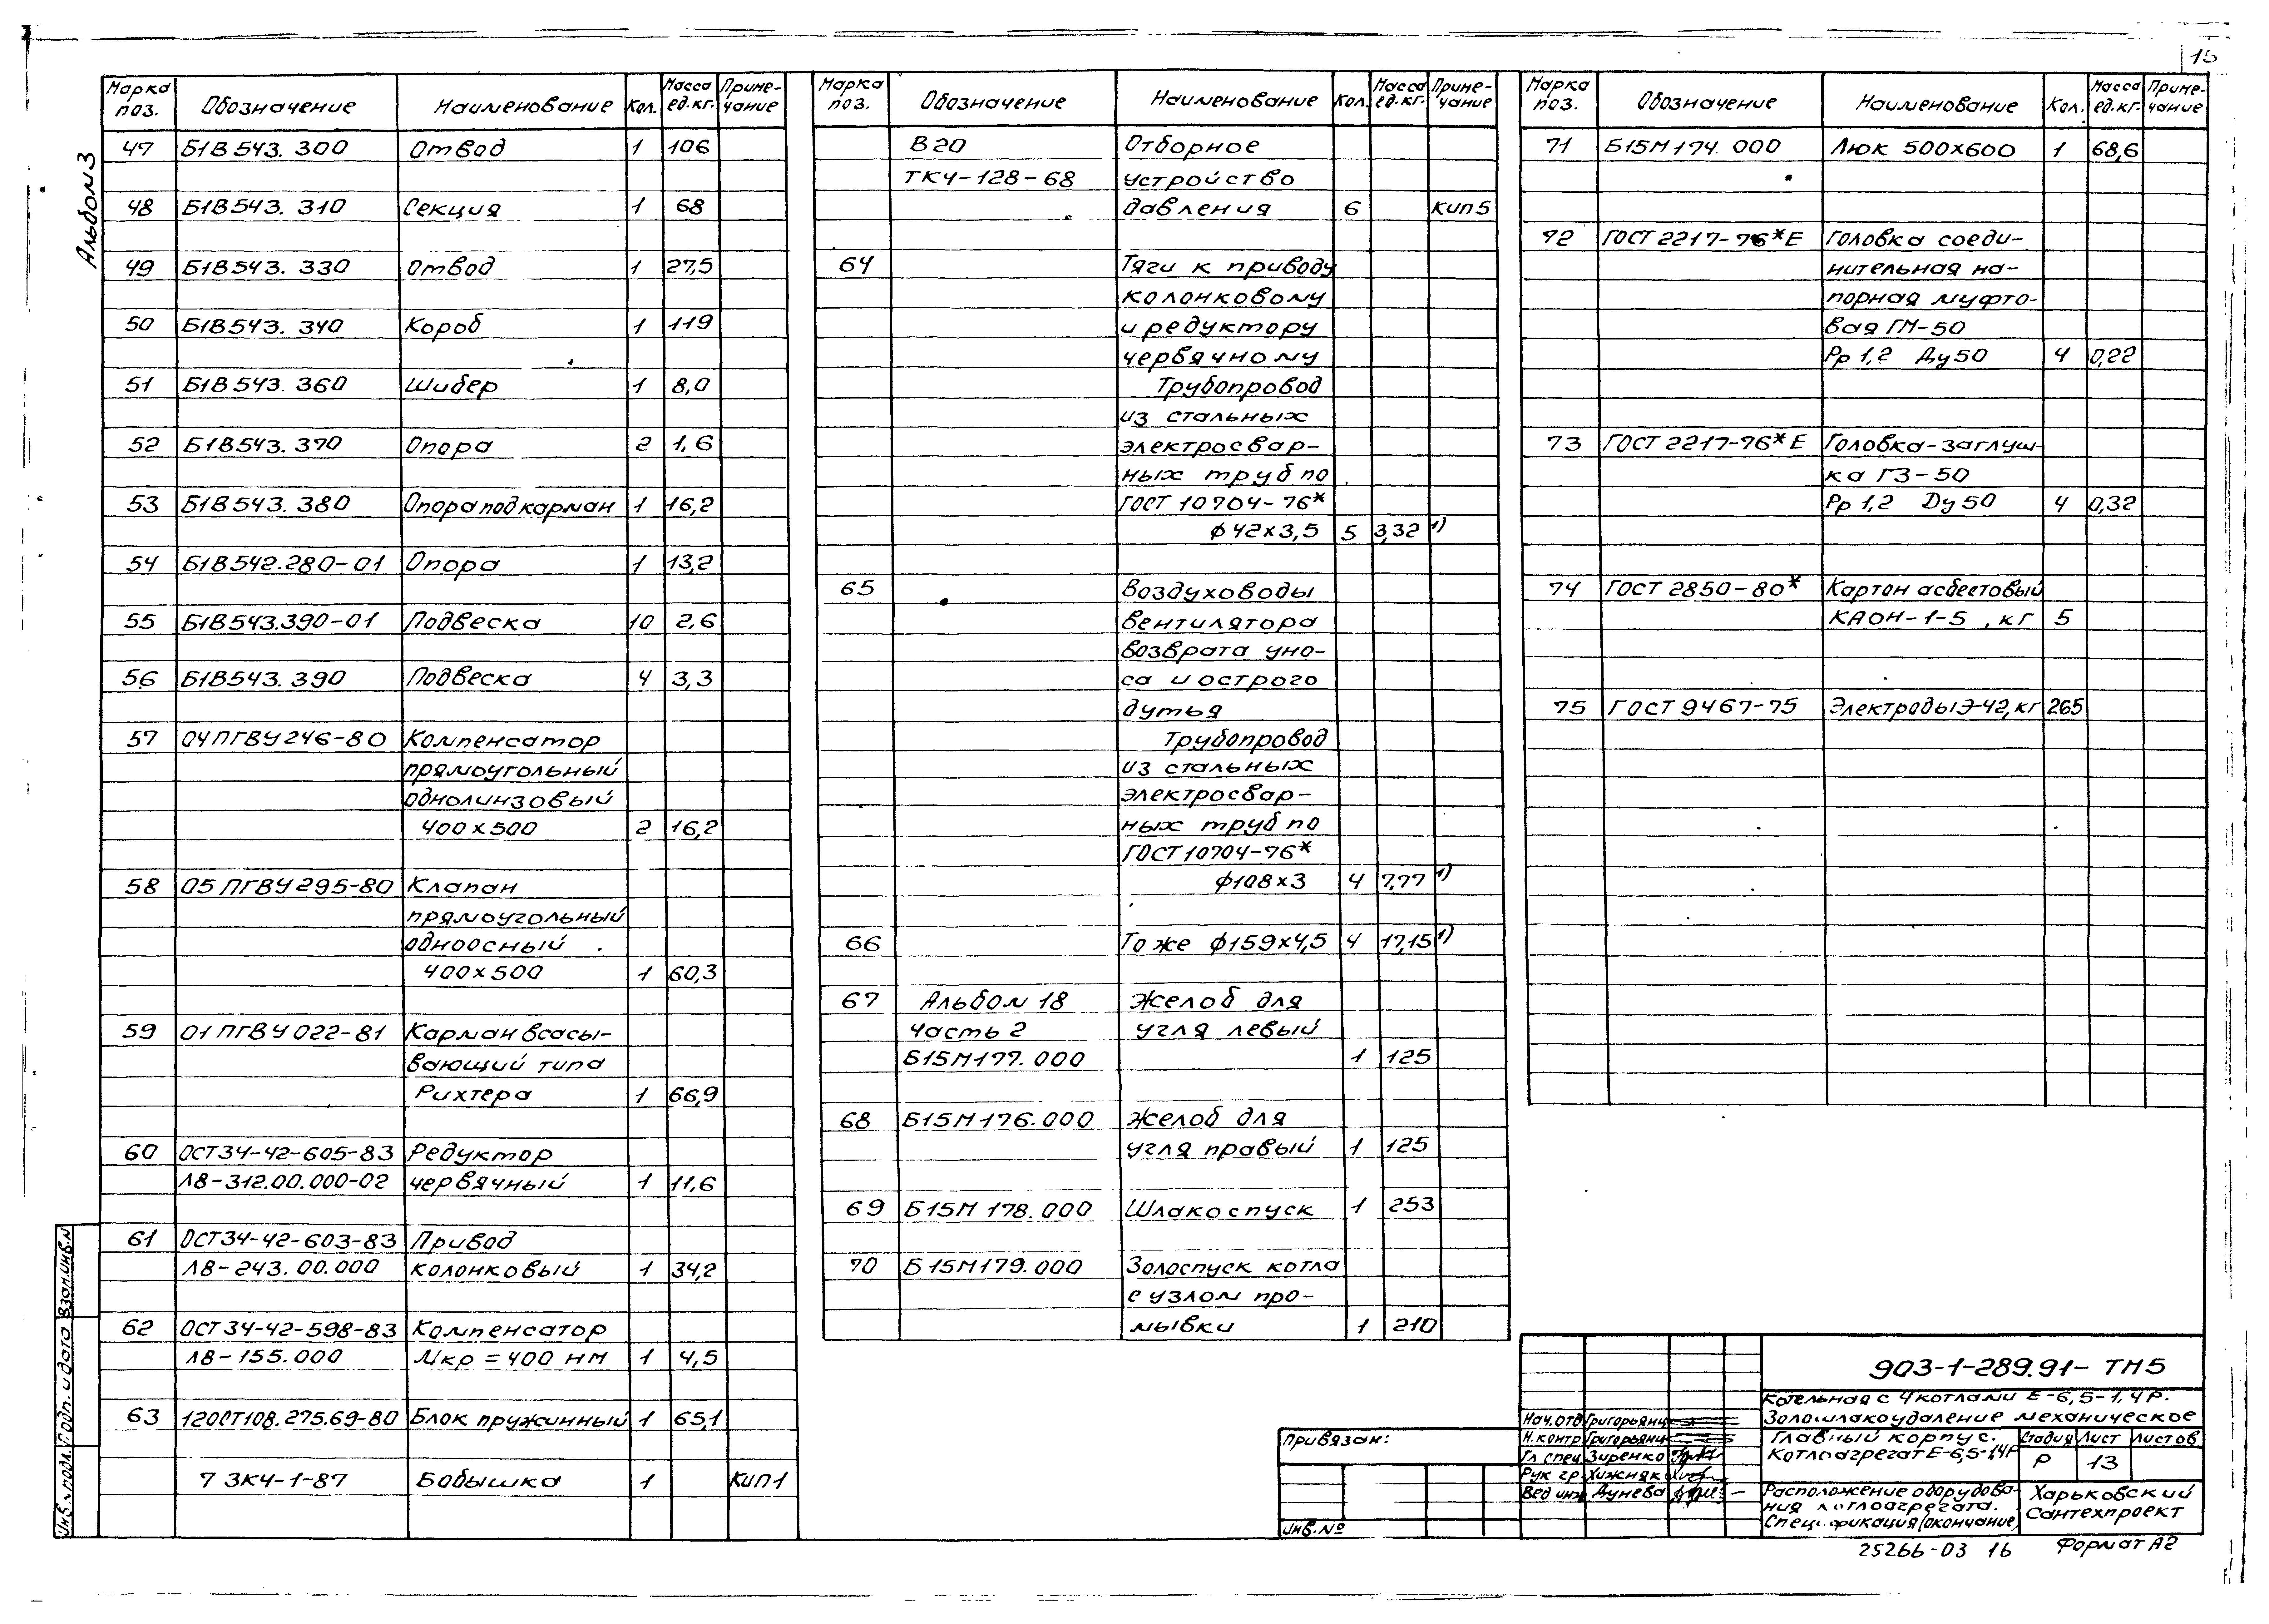 15
Альбом 3
Марка поз. Обозначение Наименование Кол. Масса ед.кг. Приме-чание
47 Б1В543.300 Отвод 1 106
48 Б1В543.310 Секция 1 68
49 Б1В543.330 Отвод 1 27,5
50 Б1В543.340 Короб 1 119
51 Б1В543.360 Шибер 1 8,0
52 Б1В543.370 Опора 2 1,6
53 Б1В543.380 Опора под карман 1 16,2
54 Б1В542.280-01 Опора 1 13,2
55 Б1В543.390-01 Подвеска 10 2,6
56 Б1В543.390 Подвеска 4 3,3
57 04ПГВУ246-80 Компенсатор
прямоугольный
однолинзовый
400х500 2 16,2
58 05ПГВУ295-80 Клапан
прямоугольный
одноосный
400х500 1 60,3
59 01ПГВУ022-81 Карман всасы-
вающий типа
Рихтера 1 66,9
60 ОСТ34-42-605-83 Редуктор
Л8-312.00.000-02 червячный 1 11,6
61 ОСТ34-42-603-83 Привод
Л8-243.00.000 колонковый 1 34,2
62 ОСТ34-42-598-83 Компенсатор
Л8-155.000 Мкр=400 НМ 1 4,5
63 12ОСТ108.275.69-80 Блок пружинный 1 65,1
7 ЗК4-1-87 Бобышка 1 КИП1
Марка поз. Обозначение Наименование Кол. Масса ед.кг. Приме-чание
В20 Отборное
ТК4-128-68 устройство
давления 6 КИП5
64 Тяги к приводу
колонковому
и редуктору
червячному
Трубопровод
из стальных
электросвар-
ных труб по
ГОСТ 10704-76*
ф42х3,5 5 3,32 1)
65 Воздуховоды
вентилятора
возврата уно-
са и острого
дутья
Трубопровод
из стальных
электросвар-
ных труб по
ГОСТ 10704-76*
ф108х3 4 7,77 1)
66 То же ф159х4,5 4 17,15 1)
67 Альбом 18 Желоб для
часть 2 угля левый
Б15М177.000 1 125
68 Б15М176.000 Желоб для
угля правый 1 125
69 Б15М178.000 Шлакоспуск 1 253
70 Б15М179.000 Золоспуск котла
с узлом про-
мывки 1 210
Марка поз. Обозначение Наименование Кол. Масса ед.кг. Приме-чание
71 Б15М174.000 Люк 500х600 1 68,6
72 ГОСТ 2217-76*Е Головка соеди-
нительная на-
порная муфто-
вая ГМ-50
Рр 1,2 Ду50 4 0,22
73 ГОСТ 2217-76*Е Головка-заглуш-
ка ГЗ-50
Рр 1,2 Dу50 4 0,32
74 ГОСТ 2850-80* Картон асбестовый
КАОН-1-5, кг 5
75 ГОСТ 9467-75 Электроды Э-42, кг 265
Взам.инв.N
Подп. и дата
Инв.N подл.
Привязан:
Инв.№
Нач.отд Григорьянц
Н.контр Григорьянц
Гл спец Зиренко
Рук гр. Хижняк
Вед инж Дунева
903-1-289.91-ТМ5
Котельная с 4 котлами Е-6,5-1,4Р.
Золошлакоудаление механическое
Главный корпус.
Котлоагрегат Е-6,5-1,4Р
Стадия Лист Листов
Р 13
Расположение оборудова-
ния котлоагрегата.
Спецификация (окончание)
Харьковский
Сантехпроект
25266-03 16 Формат А2